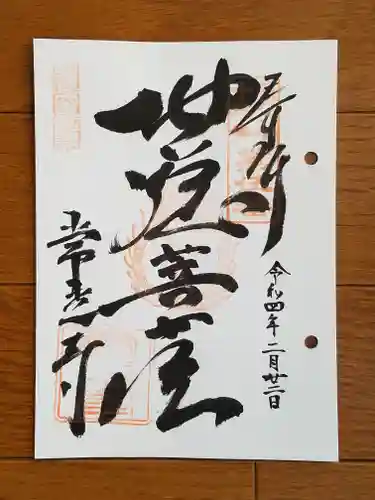 奉拝
令和四年二月廿二日
地蔵菩薩
常光寺